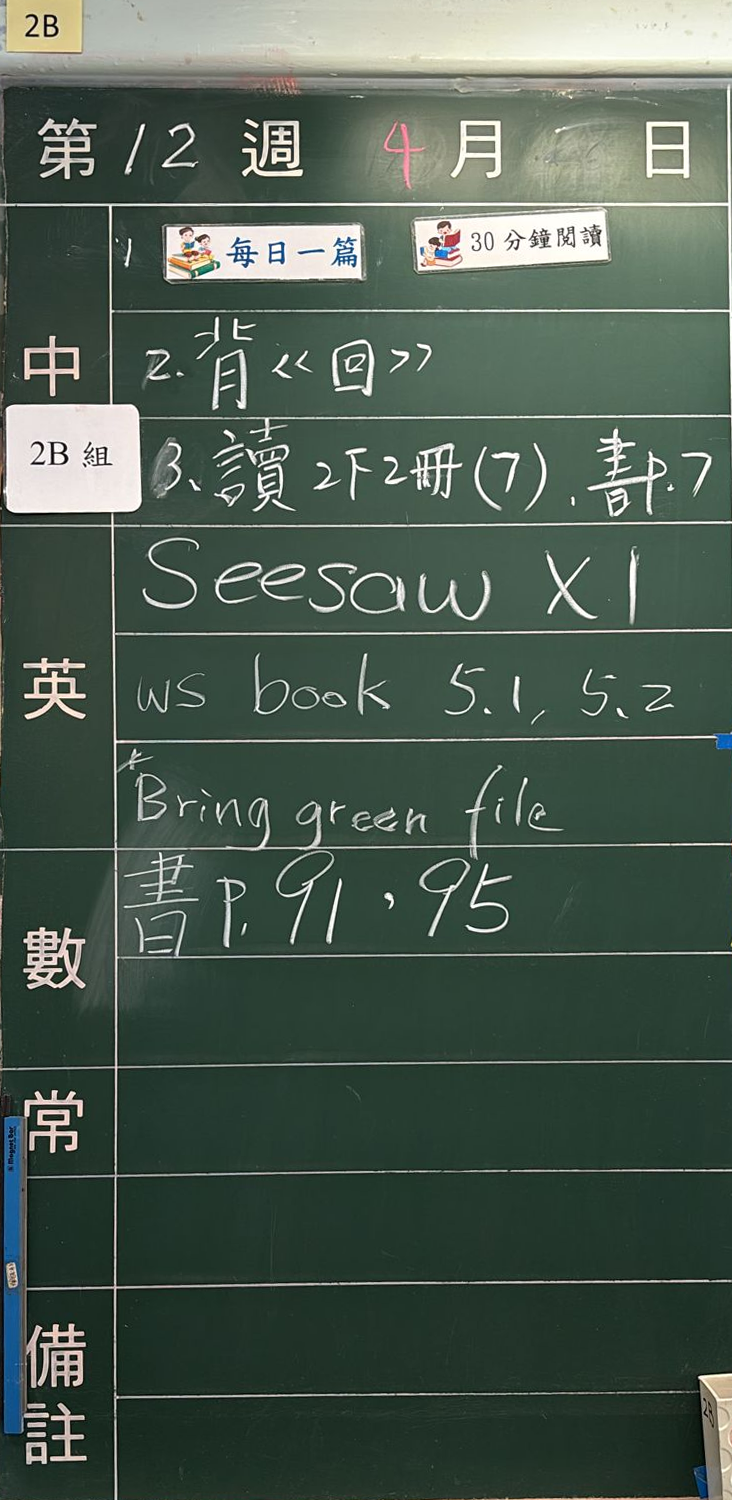 2B
第12週 4月 日
中
1 每日一篇 30分鐘閱讀
2.背<<回>>
2B組
3、讀2下2冊(7)、書P.7
英
Seesaw X1
WS book 5.1, 5.2
*Bring green file
數
書P.91,95
常
備註
2B